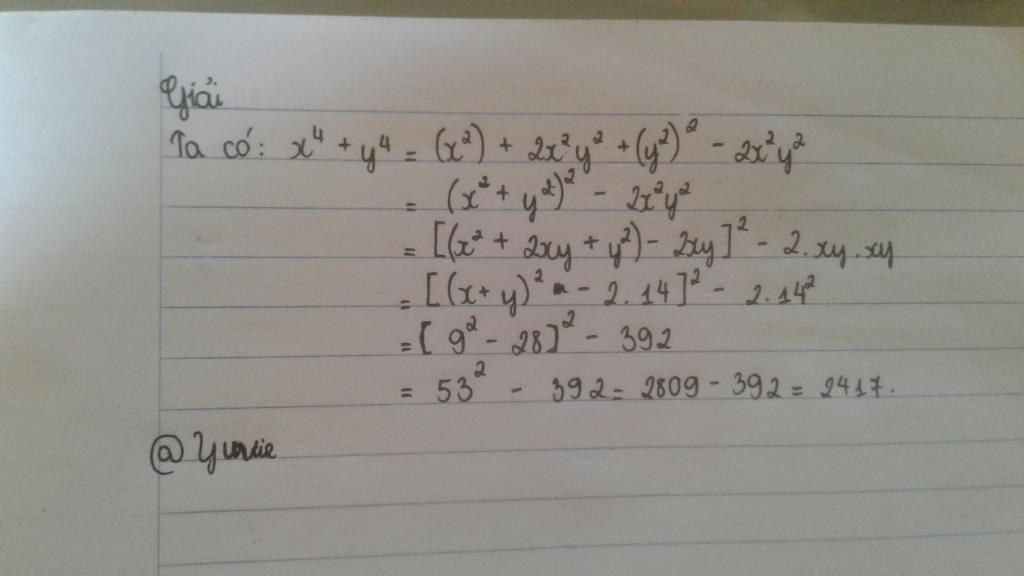 Giải
Ta có: x⁴ + y⁴ = (x²) + 2x²y² + (y²)² - 2x²y²
= (x² + y²)² - 2x²y²
= [(x² + 2xy + y²) - 2xy]² - 2.xy.xy
= [(x + y)² - 2.14]² - 2.14²
= [9² - 28]² - 392
= 53² - 392 = 2809 - 392 = 2417.
@